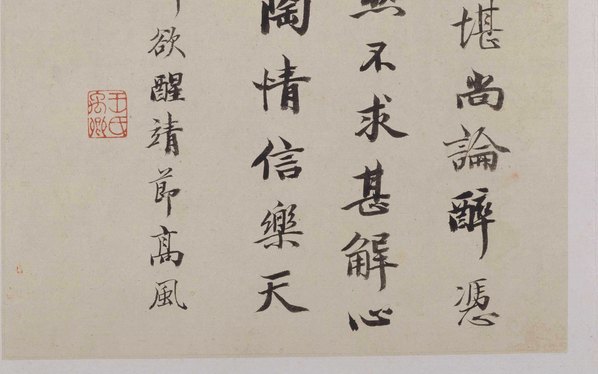 堪尚論醉憑
然不求甚解心
陶情信樂天
欲醒靖節高風
王氏禹卿